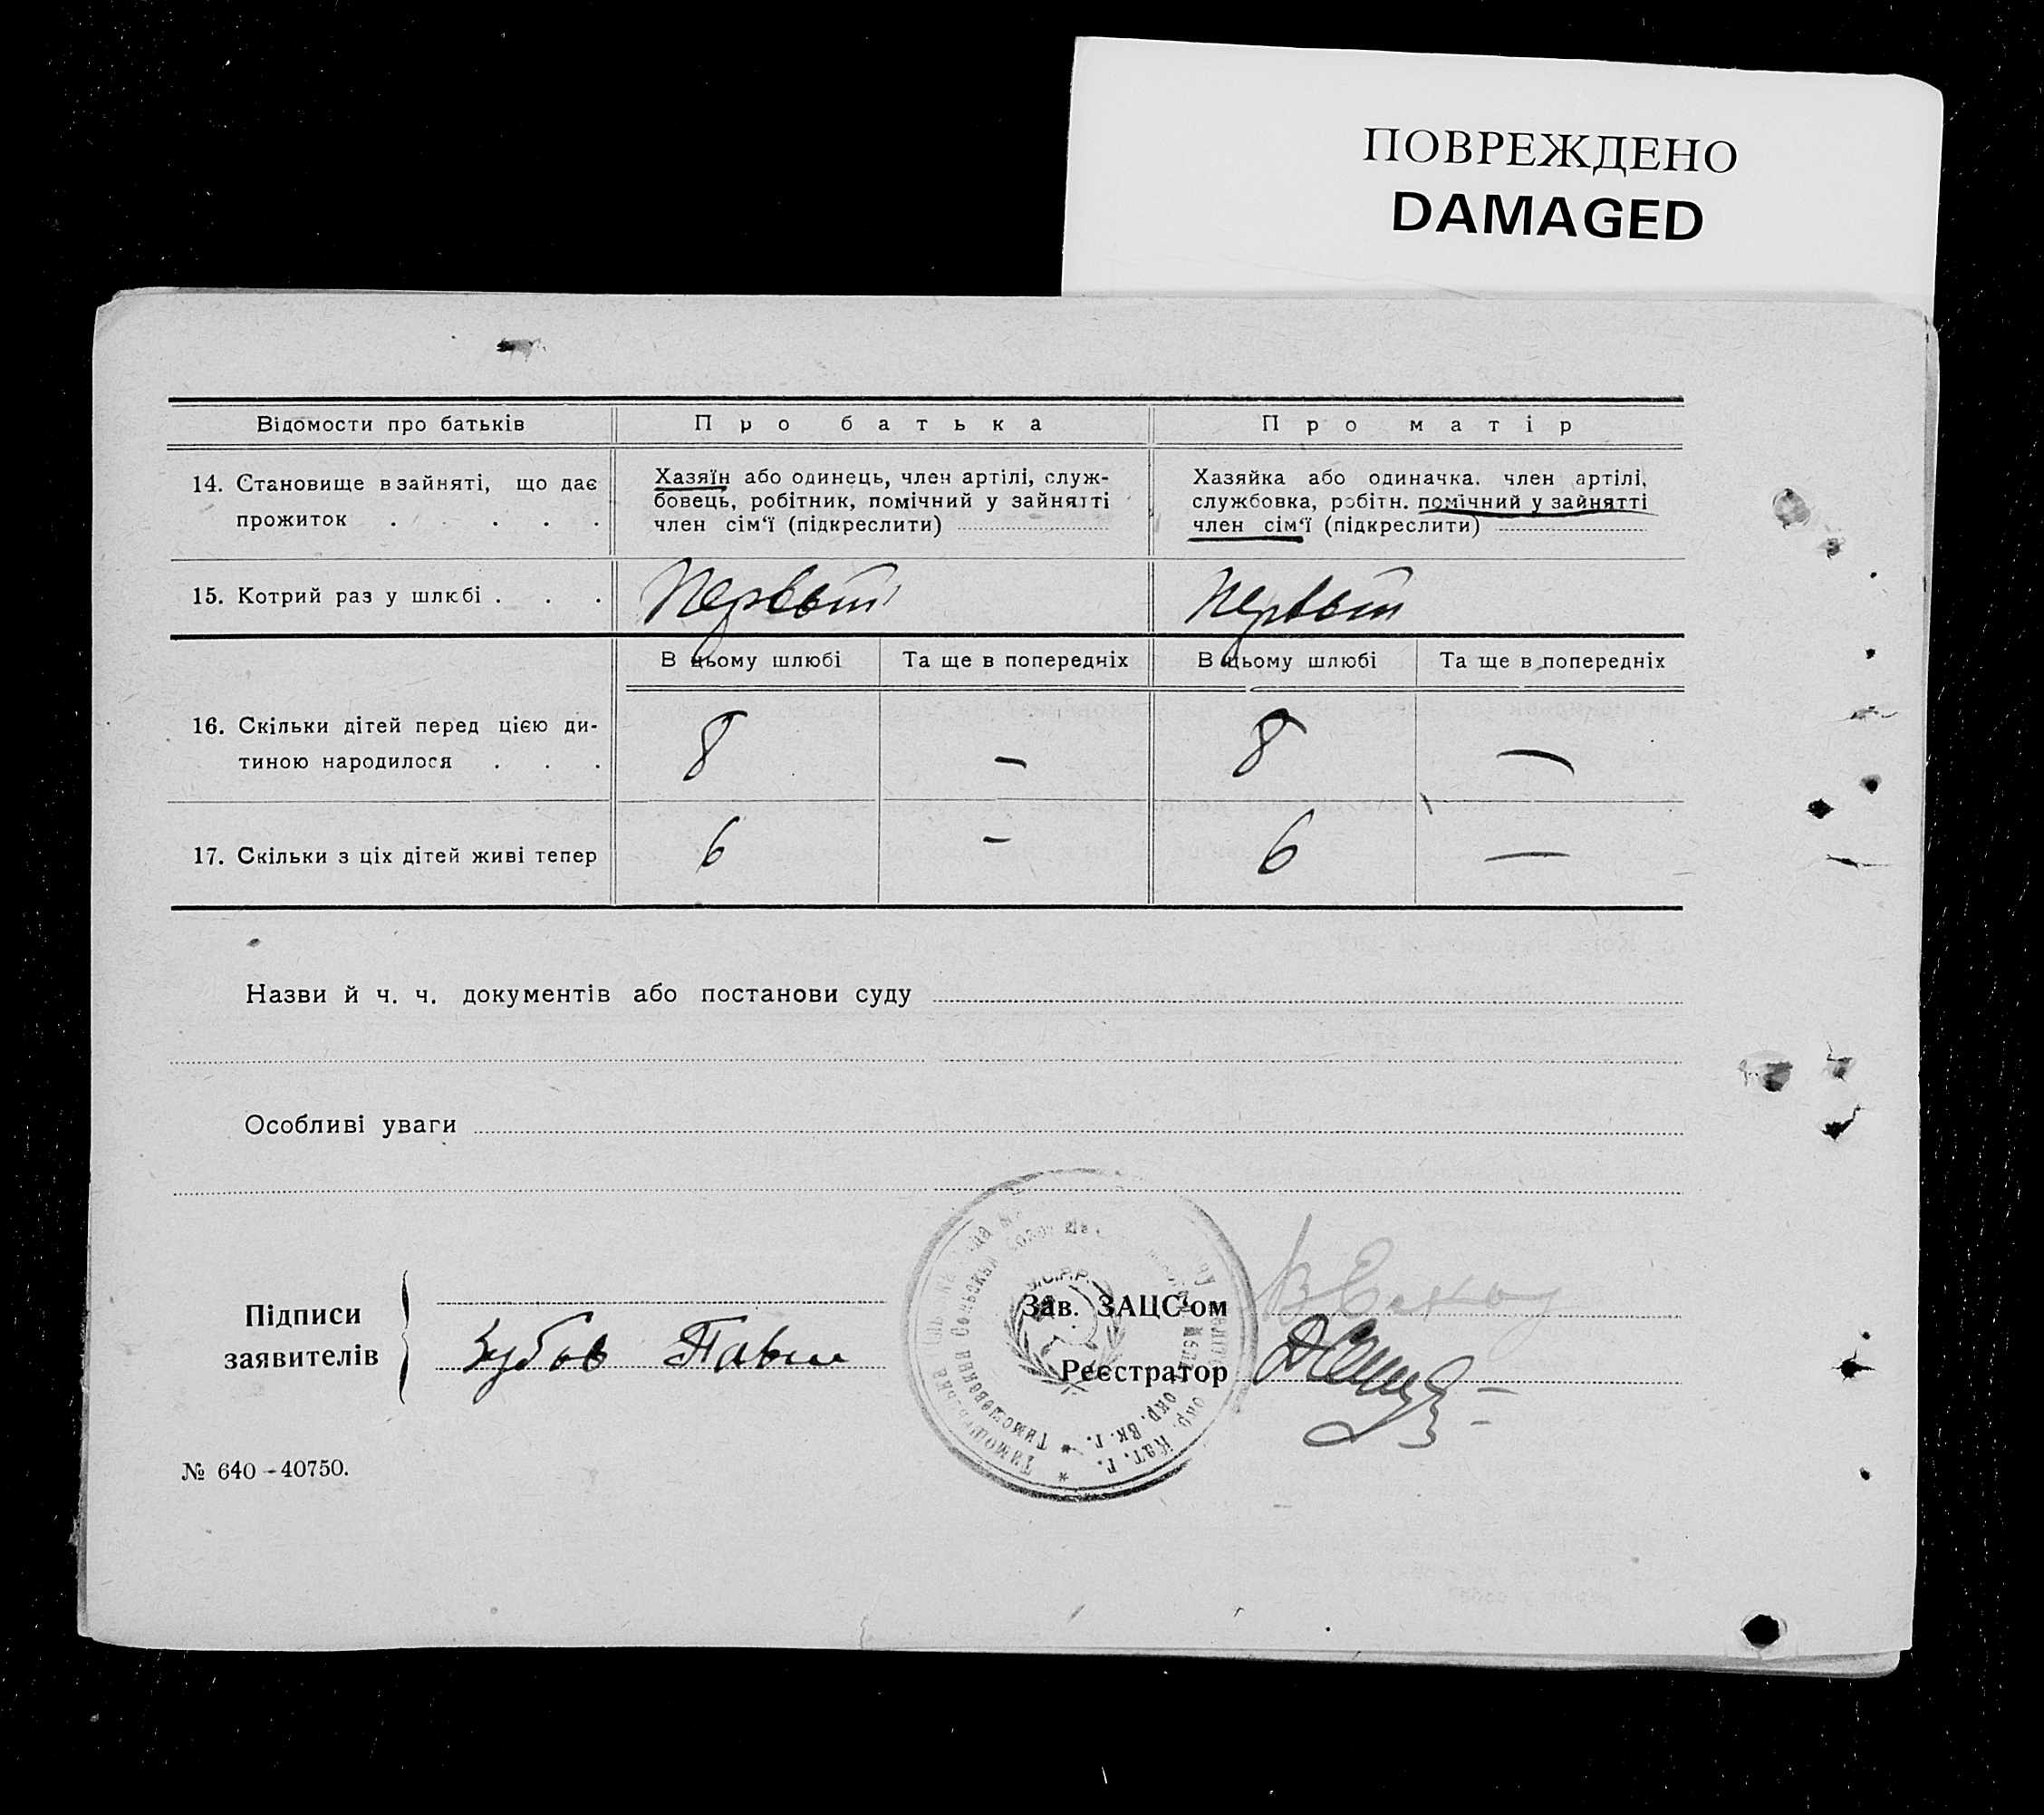 ПОВРЕЖДЕНО
DAMAGED
Відомости про батьків
Про батька
Про матір
14. Становище в зайняті, що дає
прожиток . . . . .
Хазяїн або одинець, член артілі, служ-
бовець, робітник, помічний у зайнятті
член сім'ї (підкреслити)
Хазяйка або одиначка. член артілі,
службовка, робітн. помічний у зайнятті
член сім'ї (підкреслити)
15. Котрий раз у шлюбі . . .
Первый
Первый
В цьому шлюбі
Та ще в попередніх
В цьому шлюбі
Та ще в попередніх
16. Скільки дітей перед цією ди-
тиною народилося . . .
8
—
8
—
17. Скільки з ціх дітей живі тепер
6
—
6
—
Назви й ч. ч. документів або постанови суду
Особливі уваги
Підписи
заявителів
Зубов Павел
Зав. ЗАЦС'ом
Реєстратор
У.С.Р.Р.
№ 640-40750.